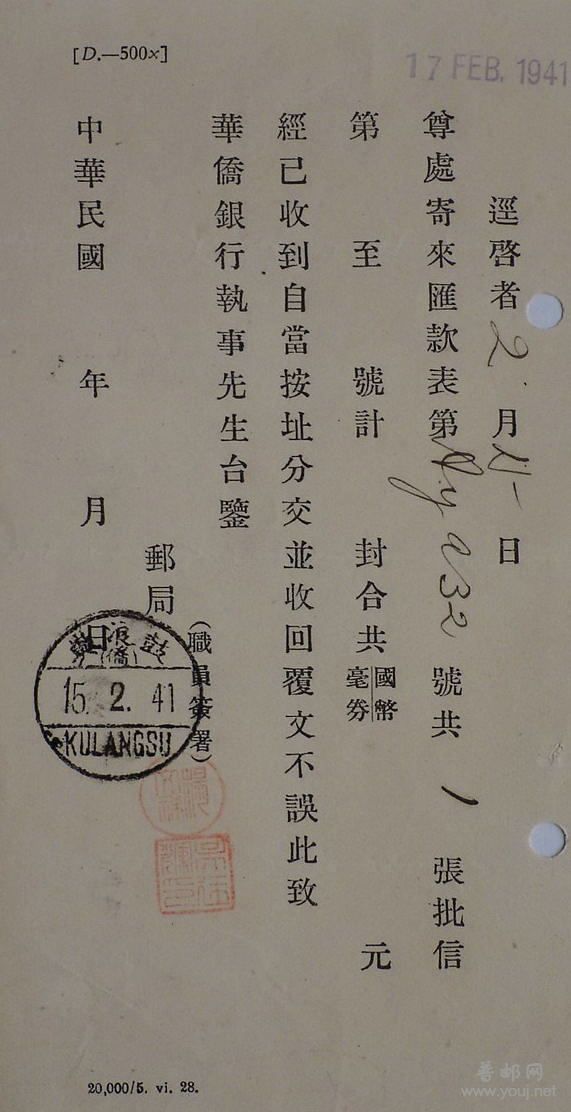 [D.—500x]
17 FEB. 1941
逕啓者2月 日
尊處寄來匯款表第 號共 張批信
第 至 號計 封合共國幣毫券 元
經已收到自當按址分交並收回覆文不誤此致
華僑銀行執事先生台鑒
郵局
(職員簽署)
中華民國 年 月 日
鼓浪嶼
(僑)
15. 2. 41
KULANGSU
20,000/5. vi. 28.
普邮网
www.youj.net